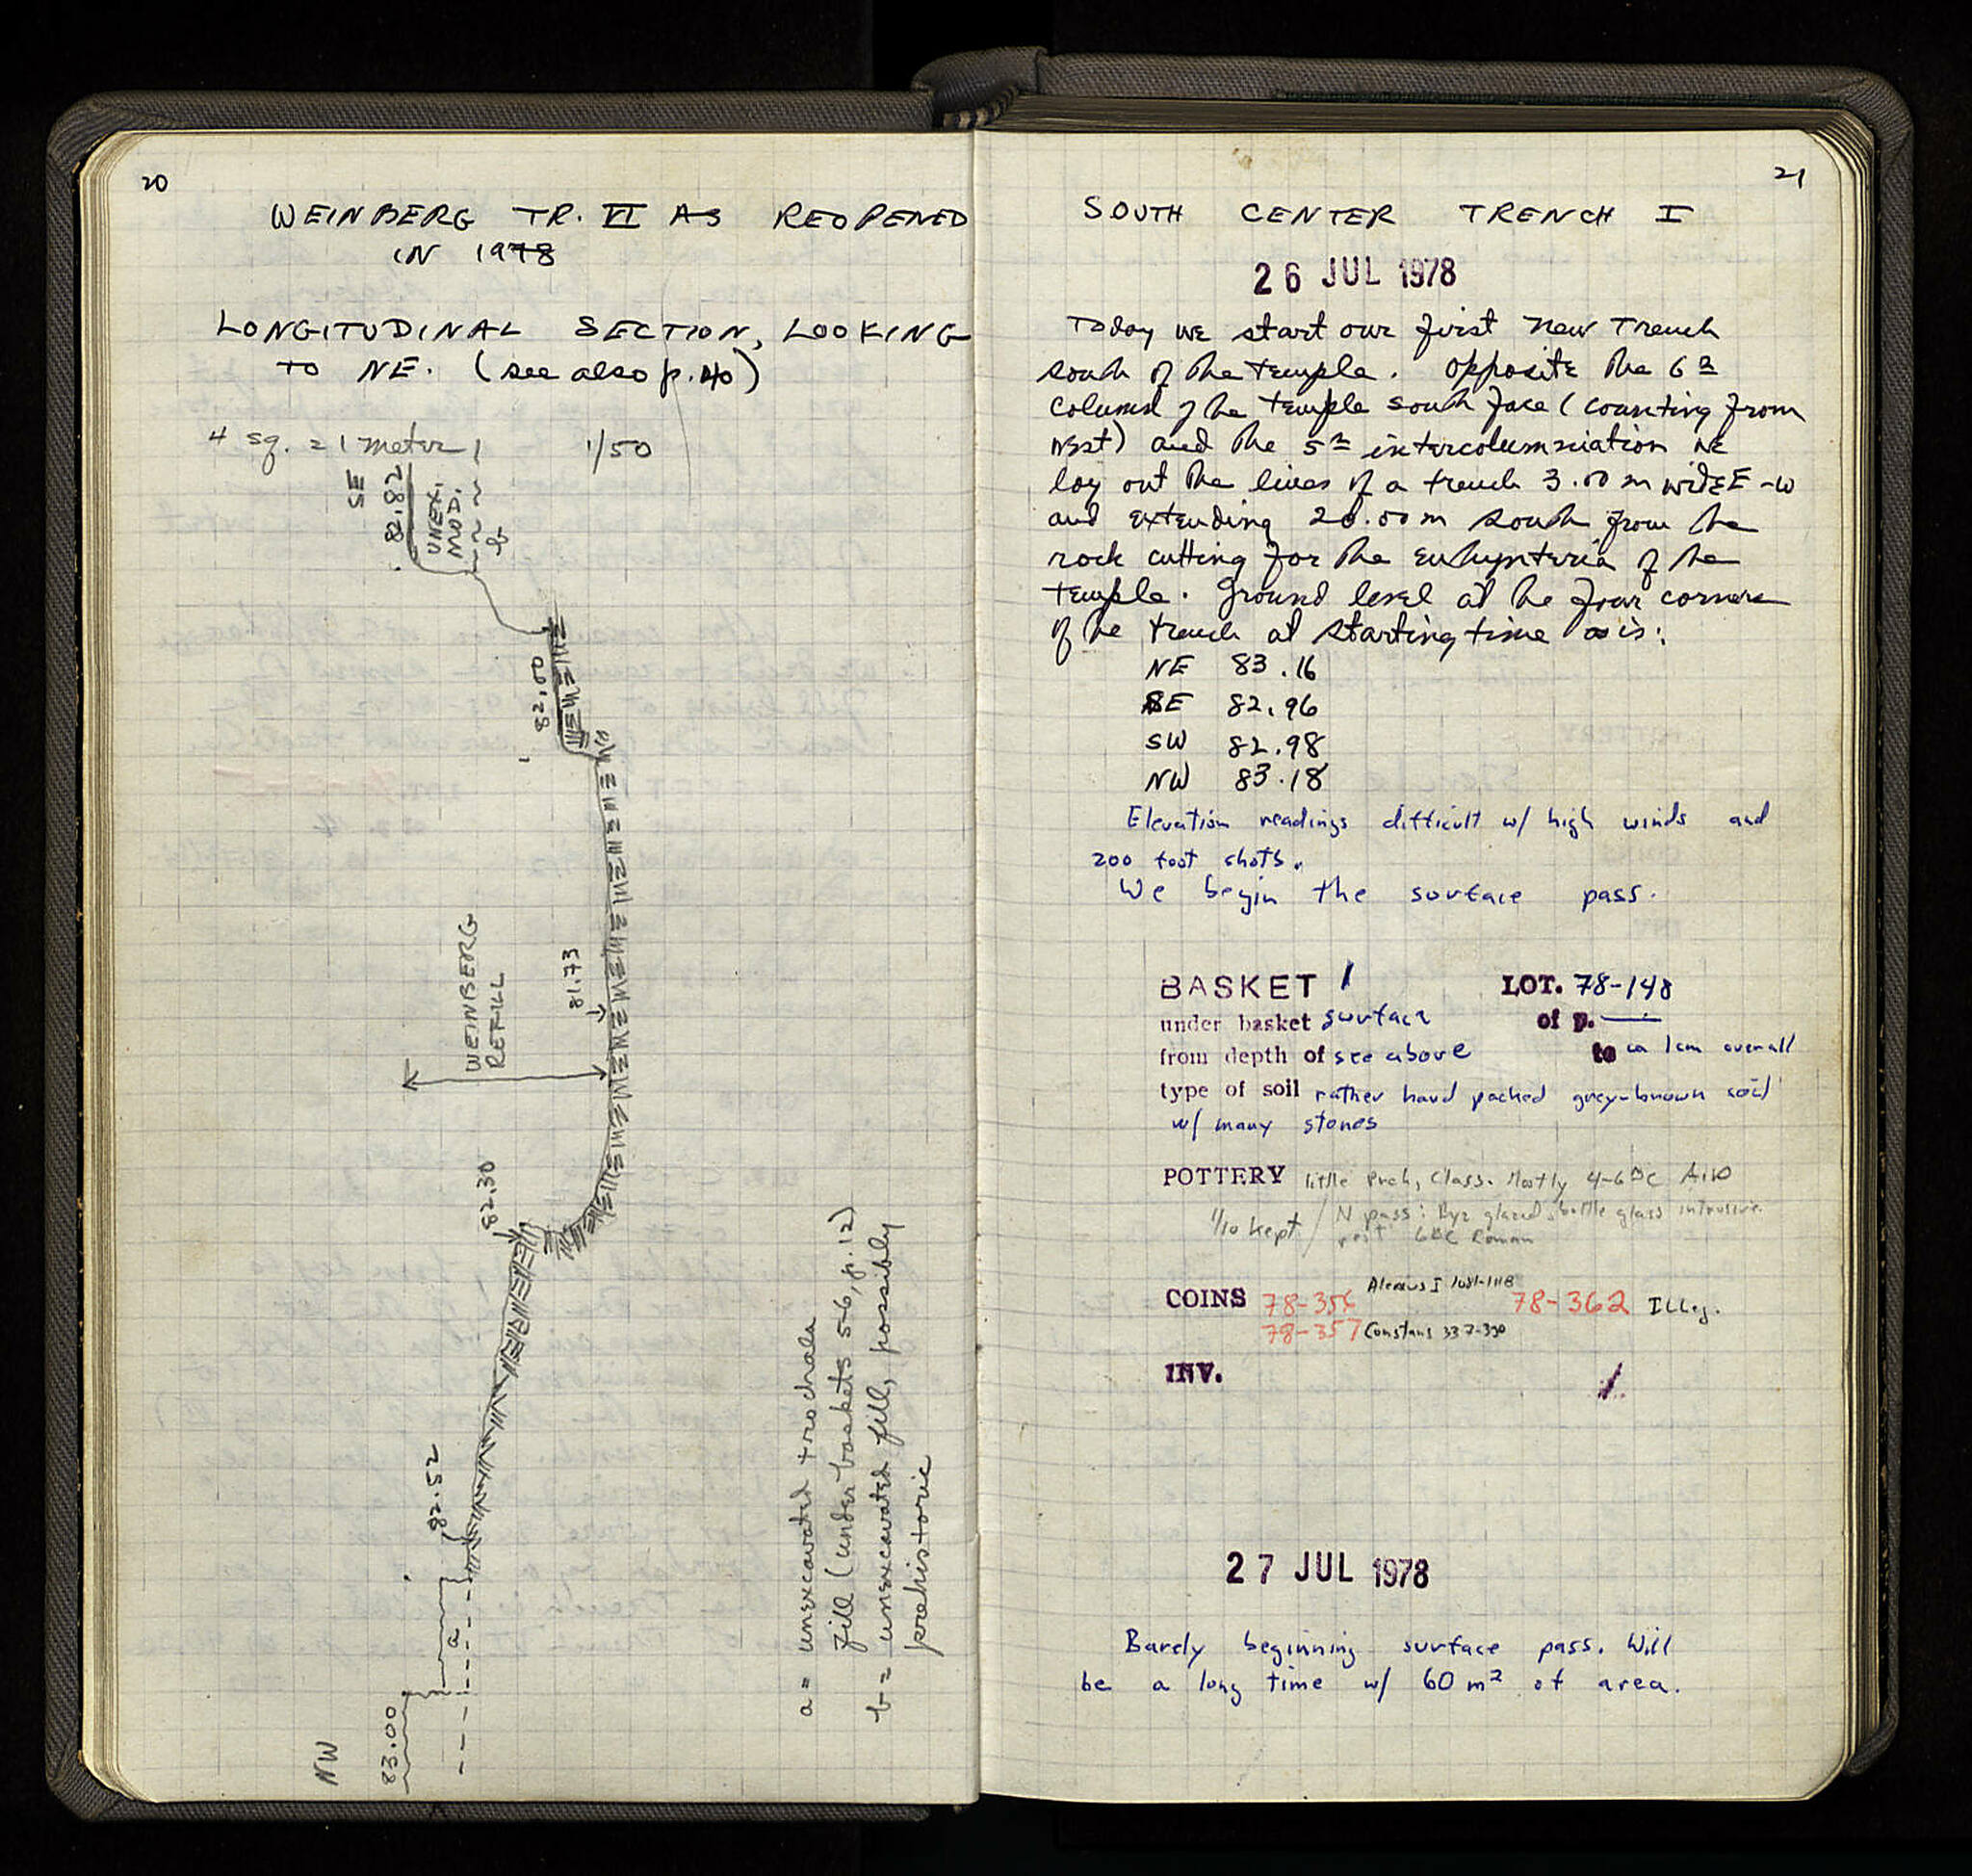 20
WEINBERG TR. VI AS REOPENED
IN 1978
LONGITUDINAL SECTION, LOOKING
TO NE. (see also p. 40)
4 sq. = 1 meter 1/50
SE
82.82
UNEX.
MOD.
b
82.00
81.73
WEINBERG
REFILL
82.30
82.52
a
83.00
NW
a = unexcavated trochala
fill (under baskets 5-6, p. 12)
b = unexcavated fill, possibly
prehistoric
21
SOUTH CENTER TRENCH I
26 JUL 1978
Today we start our first new trench
south of the temple. Opposite the 6th
column of the temple south face (counting from
west) and the 5th intercolumniation we
lay out the lines of a trench 3.00 m wide E-W
and extending 20.00 m south from the
rock cutting for the euthynteria of the
temple. Ground level at the four corners
of the trench at starting time is:
NE 83.16
SE 82.96
SW 82.98
NW 83.18
Elevation readings difficult w/ high winds and
200 foot shots.
We begin the surface pass.
BASKET 1 LOT. 78-148
under basket surface of p. —
from depth of see above to ca 1cm overall
type of soil rather hard packed grey-brown soil
w/ many stones
POTTERY little Preh, Class. Mostly 4-6th C AD
1/10 kept / N pass: Byz glazed, bottle glass intrusive.
post 6th C Roman
COINS 78-356 Alexius I 1081-1118 78-362 Illeg.
78-357 Constans 337-350
INV. /
27 JUL 1978
Barely beginning surface pass. Will
be a long time w/ 60 m² of area.